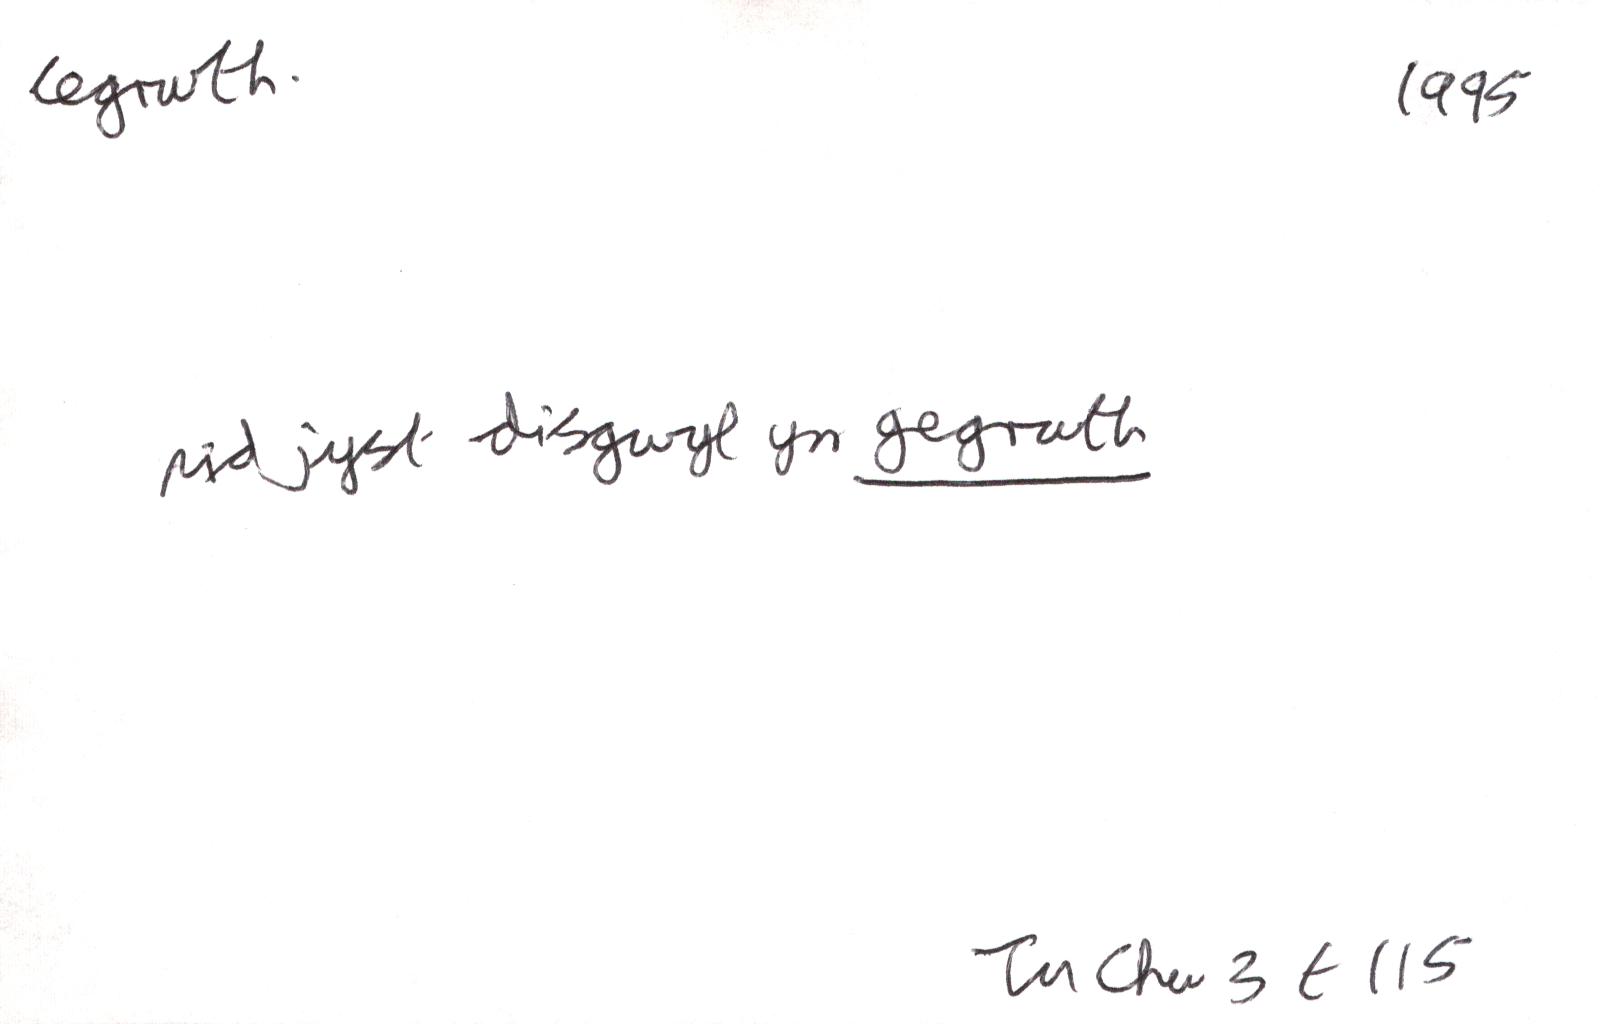 cegrwth. 1995
nid jyst disgwyl yn gegrwth
Tu Chw 3 t 115